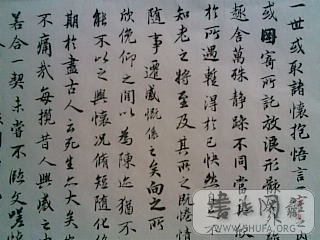 一世或取諸懷抱悟言一
或因寄所託放浪形骸之外雖
趣舍萬殊静躁不同當
於所遇蹔得於己快然
知老之將至及其所之既惓情
隨事遷感慨係之矣向之所
欣俛仰之間以為陳迹猶不
能不以之興懷况脩短隨化
期於盡古人云死生亦大矣豈
不痛哉每攬昔人興感之
若合一契未嘗不臨文嗟
WWW.SHUFA.ORG